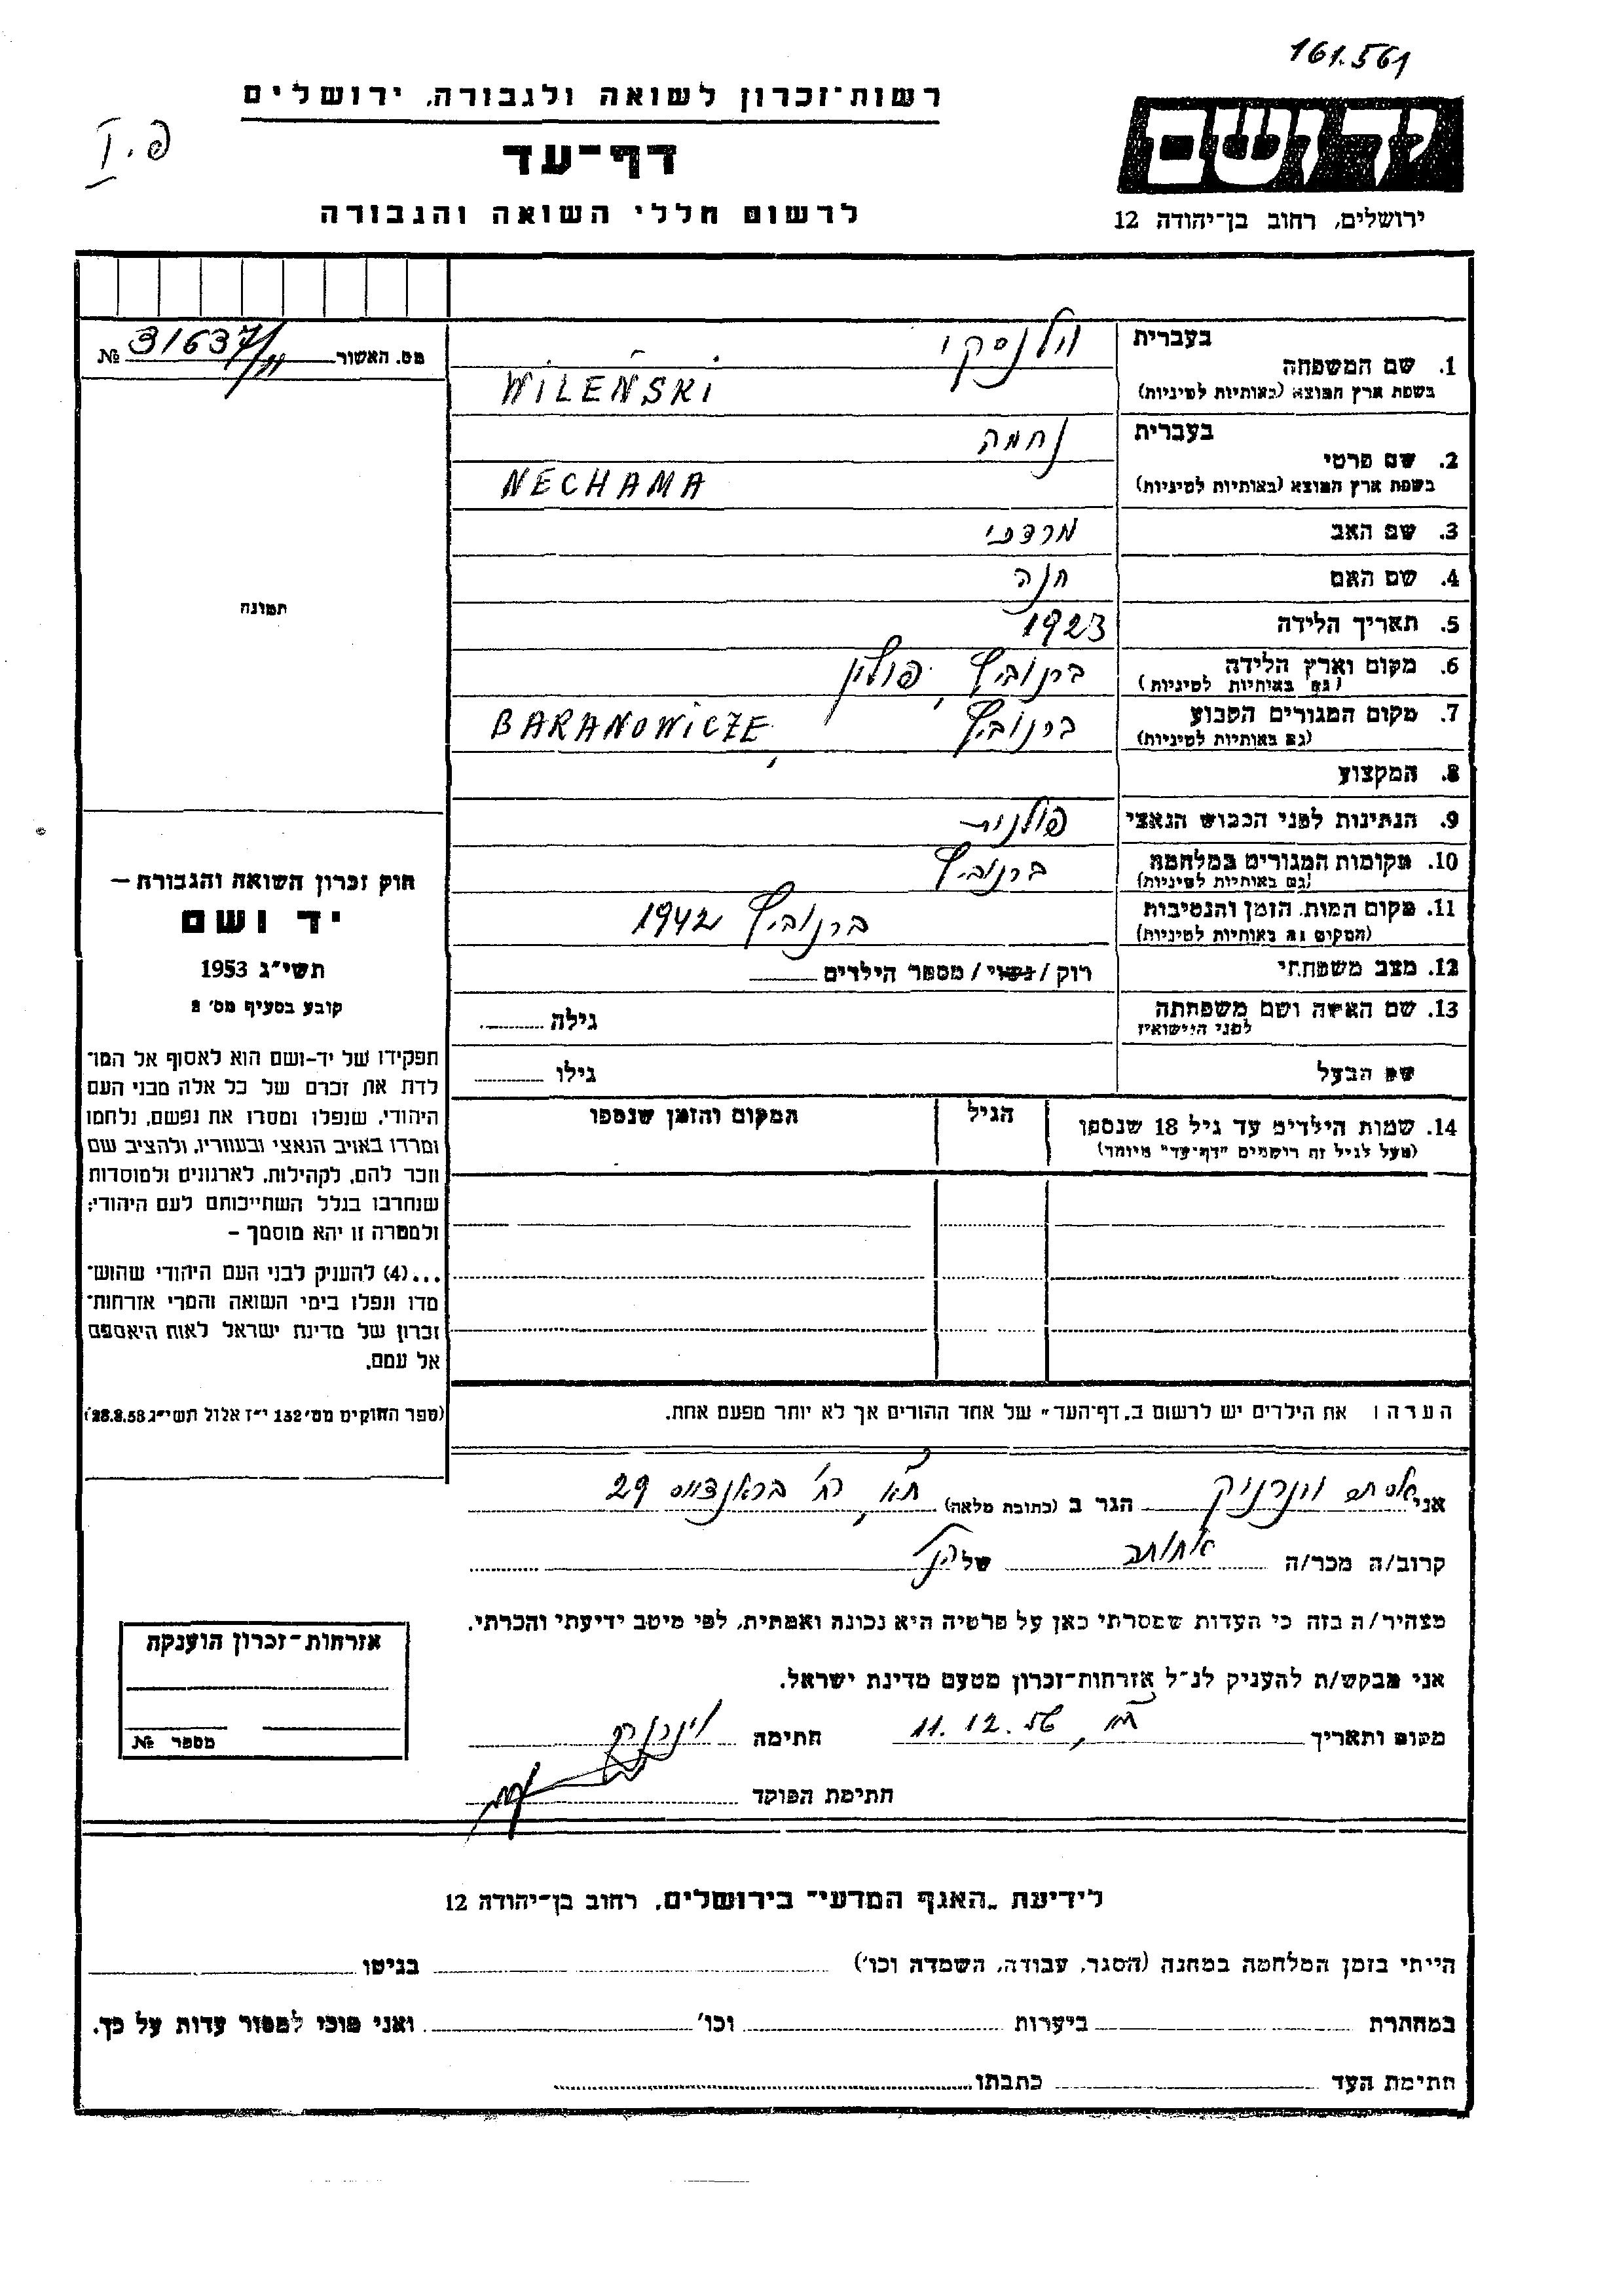 161.561
רשות-זכרון לשואה ולגבורה, ירושלים
דף-עד
לרשום חללי השואה והגבורה
פ. I
יד ושם
ירושלים, רחוב בן-יהודה 12
מס. האשור 31637/ №
תמונה
בעברית וילנסקי
1. שם המשפחה
בשפת ארץ המוצא (באותיות לטיניות) WILEŃSKI
בעברית נחמה
2. שם פרטי
בשפת ארץ המוצא (באותיות לטיניות) NECHAMA
3. שם האב מרדכי
4. שם האם חנה
5. תאריך הלידה 1923
6. מקום וארץ הלידה ברנוביץ, פולין
(גם באותיות לטיניות)
7. מקום המגורים הקבוע ברנוביץ, BARANOWICZE
(גם באותיות לטיניות)
8. המקצוע
9. הנתינות לפני הכבוש הנאצי פולנית
10. מקומות המגורים במלחמה ברנוביץ
(גם באותיות לטיניות)
11. מקום המות, הזמן והנסיבות ברנוביץ 1942
(המקום גם באותיות לטיניות)
12. מצב משפחתי רוק / נשוי / מספר הילדים
13. שם האשה ושם משפחתה גילה
לפני הנישואין
שם הבעל גילו
14. שמות הילדים עד גיל 18 שנספו הגיל המקום והזמן שנספו
(מעל לגיל זה רושמים "דף-עד" מיוחד)
חוק זכרון השואה והגבורה –
יד ושם
תשי"ג 1953
קובע בסעיף מס' 2
תפקידו של יד-ושם הוא לאסוף אל המו־
לדת את זכרם של כל אלה מבני העם
היהודי, שנפלו ומסרו את נפשם, נלחמו
ומרדו באויב הנאצי ובעוזריו, ולהציב שם
וזכר להם, לקהילות, לארגונים ולמוסדות
שנחרבו בגלל השתייכותם לעם היהודי;
ולמטרה זו יהא מוסמך –
...(4) להעניק לבני העם היהודי שהוש־
מדו ונפלו בימי השואה והמרי אזרחות־
זכרון של מדינת ישראל לאות היאספם
אל עמם.
(ספר החוקים מס' 132 י"ז אלול תשי"ג 28.8.53)
הערה: את הילדים יש לרשום ב„דף-העד" של אחד ההורים אך לא יותר מפעם אחת.
אני אסתר הגר ב (כתובת מלאה) ת"א, רח' בראנדייס 29
קרוב/ה מכר/ה אחותה של הנ"ל
מצהיר/ה בזה כי העדות שמסרתי כאן על פרטיה היא נכונה ואמתית, לפי מיטב ידיעתי והכרתי.
אני מבקש/ת להעניק לנ"ל אזרחות-זכרון מטעם מדינת ישראל.
מקום ותאריך ת"א, 11.12.56 חתימה
חתימת הפוקד
אזרחות-זכרון הוענקה
מספר №
לידיעת „האגף המדעי" בירושלים, רחוב בן-יהודה 12
הייתי בזמן המלחמה במחנה (הסגר, עבודה, השמדה וכו') בגיטו
במחתרת ביערות וכו' ואני מוכן למסור עדות על כך.
חתימת העד כתבתו